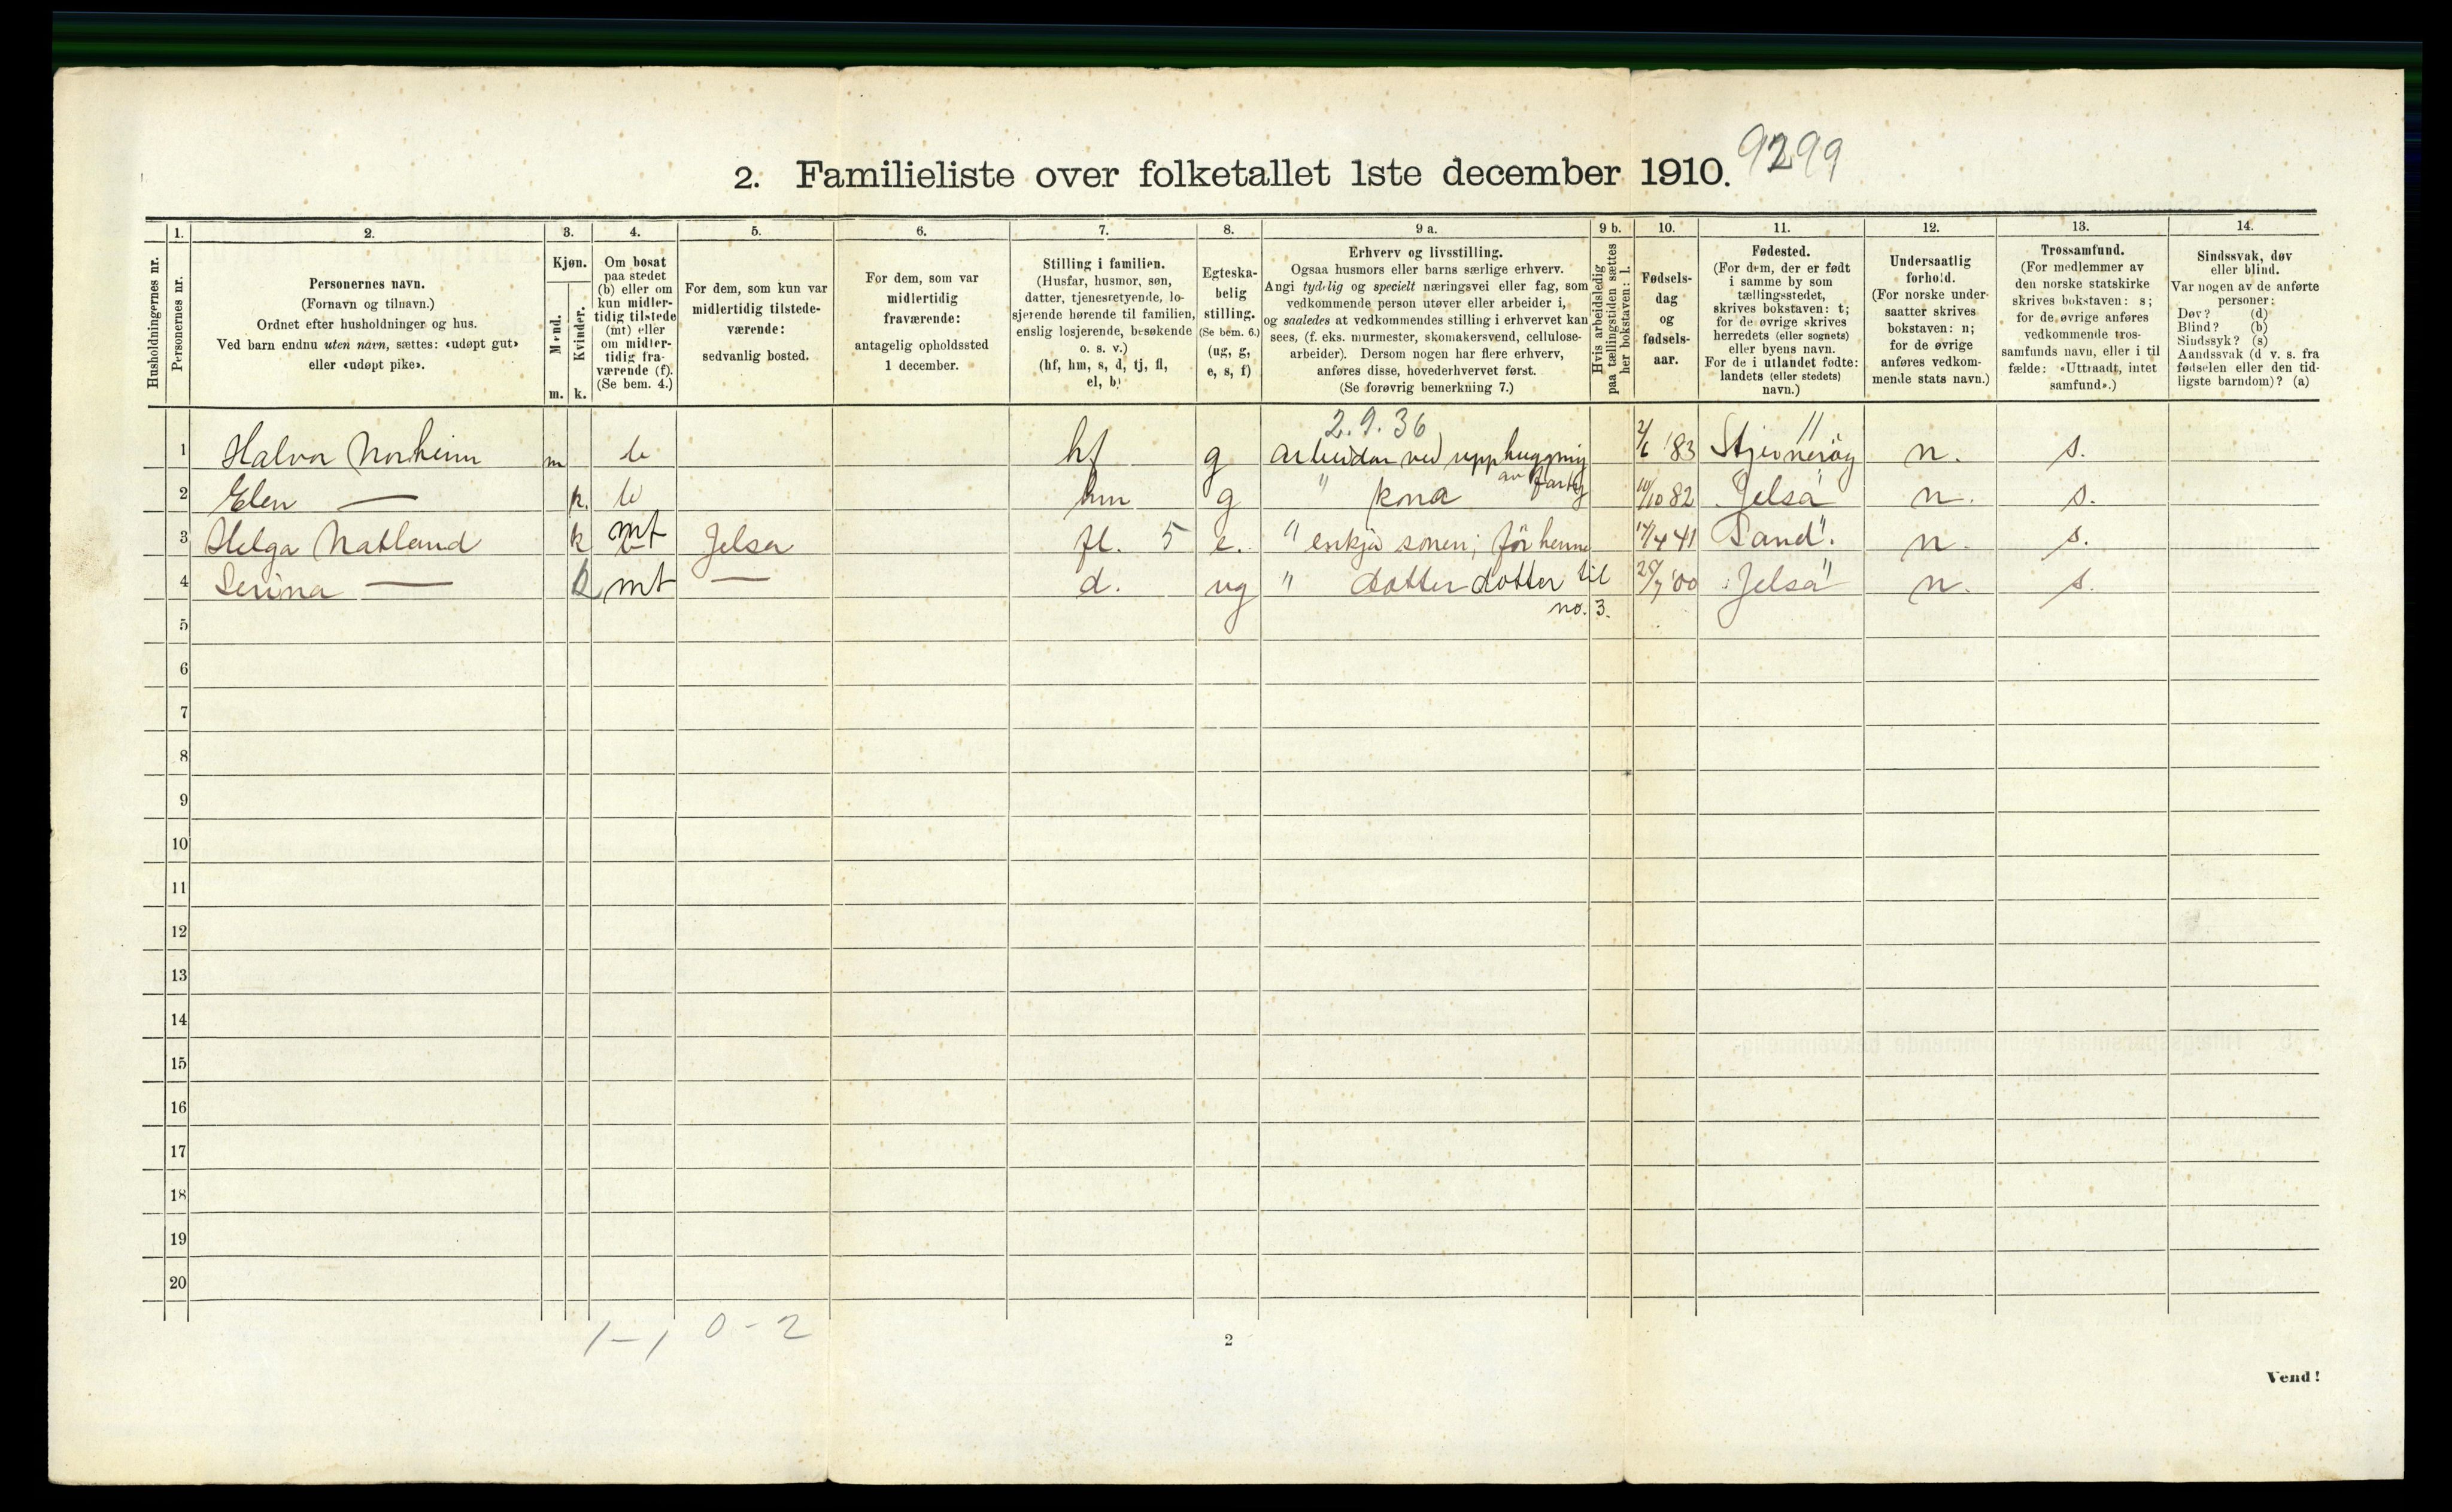 2. Familieliste over folketallet 1ste december 1910. 9299
1. 2. 3. 4. 5. 6. 7. 8. 9 a. 9 b. 10. 11. 12. 13. 14.
Husholdningernes nr.
Personernes nr.
Personernes navn.
(Fornavn og tilnavn.)
Ordnet efter husholdninger og hus.
Ved barn endnu uten navn, sættes: «udøpt gut»
eller «udøpt pike».
Kjøn.
Mænd.
Kvinder.
m. k.
Om bosat
paa stedet
(b) eller om
kun midler-
tidig tilstede
(mt) eller
om midler-
tidig fra-
værende (f).
(Se bem. 4.)
For dem, som kun var
midlertidig tilstede-
værende:
sedvanlig bosted.
For dem, som var
midlertidig
fraværende:
antagelig opholdssted
1 december.
Stilling i familien.
(Husfar, husmor, søn,
datter, tjenestetyende, lo-
sjerende hørende til familien,
enslig losjerende, besøkende
o. s. v.)
(hf, hm, s, d, tj, fl,
el, b)
Egteska-
belig
stilling.
(Se bem. 6.)
(ug, g,
e, s, f)
Erhverv og livsstilling.
Ogsaa husmors eller barns særlige erhverv.
Angi tydelig og specielt næringsvei eller fag, som
vedkommende person utøver eller arbeider i,
og saaledes at vedkommendes stilling i erhvervet kan
sees, (f. eks. murmester, skomakersvend, cellulose-
arbeider). Dersom nogen har flere erhverv,
anføres disse, hovederhvervet først.
(Se forøvrig bemerkning 7.)
Hvis arbeidsledig
paa tællingstiden sættes
her bokstaven: l.
Fødsels-
dag
og
fødsels-
aar.
Fødested.
(For dem, der er født
i samme by som
tællingsstedet,
skrives bokstaven: t;
for de øvrige skrives
herredets (eller sognets)
eller byens navn.
For de i utlandet fødte:
landets (eller stedets)
navn.)
Undersaatlig
forhold.
(For norske under-
saatter skrives
bokstaven: n;
for de øvrige
anføres vedkom-
mende stats navn.)
Trossamfund.
(For medlemmer av
den norske statskirke
skrives bokstaven: s;
for de øvrige anføres
vedkommende tros-
samfunds navn, eller i til
fælde: «Uttraadt, intet
samfund».)
Sindssvak, døv
eller blind.
Var nogen av de anførte
personer:
Døv? (d)
Blind? (b)
Sindssyk? (s)
Aandssvak (d v. s. fra
fødselen eller den tid-
ligste barndom)? (a)
2.9.36
1 Halvor Norheim m b hf g arbeidar ved upphugging 2/6 '83 Stjerneröy n. s.
av fartög
2 Elen — k. b hm g " kona 10/10 82 Jelsa n. s.
3 Helga Natland k mt Jelsa fl. 5 e. " enkja sonen; för henne 17/4 41 Sand. n. s.
4 Serina — k mt — d. ug " dotter dotter til 28/7 '00 Jelsa n. s.
no. 3.
5
6
7
8
9
10
11
12
13
14
15
16
17
18
19
20
1-1 0-2
2
Vend!